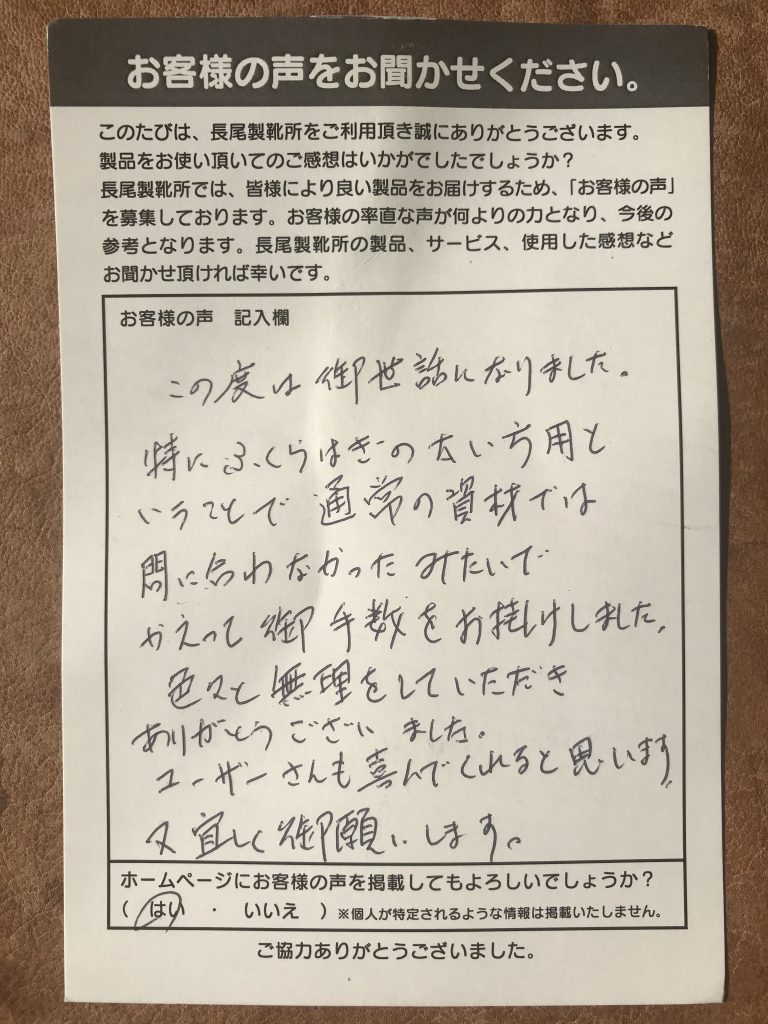 お客様の声をお聞かせください。
このたびは、長尾製靴所をご利用頂き誠にありがとうございます。
製品をお使い頂いてのご感想はいかがでしたでしょうか？
長尾製靴所では、皆様により良い製品をお届けするため、「お客様の声」
を募集しております。お客様の率直な声が何よりの力となり、今後の
参考となります。長尾製靴所の製品、サービス、使用した感想など
お聞かせ頂ければ幸いです。
お客様の声　記入欄
この度は御世話になりました。
特にふくらはぎの太い方用と
いうことで通常の資材では
間に合わなかったみたいで
かえって御手数をお掛けしました。
色々と無理をしていただき
ありがとうございました。
ユーザーさんも喜んでくれると思います。
又宜しく御願いします。
ホームページにお客様の声を掲載してもよろしいでしょうか？
（　はい　・　いいえ　）※個人が特定されるような情報は掲載いたしません。
ご協力ありがとうございました。